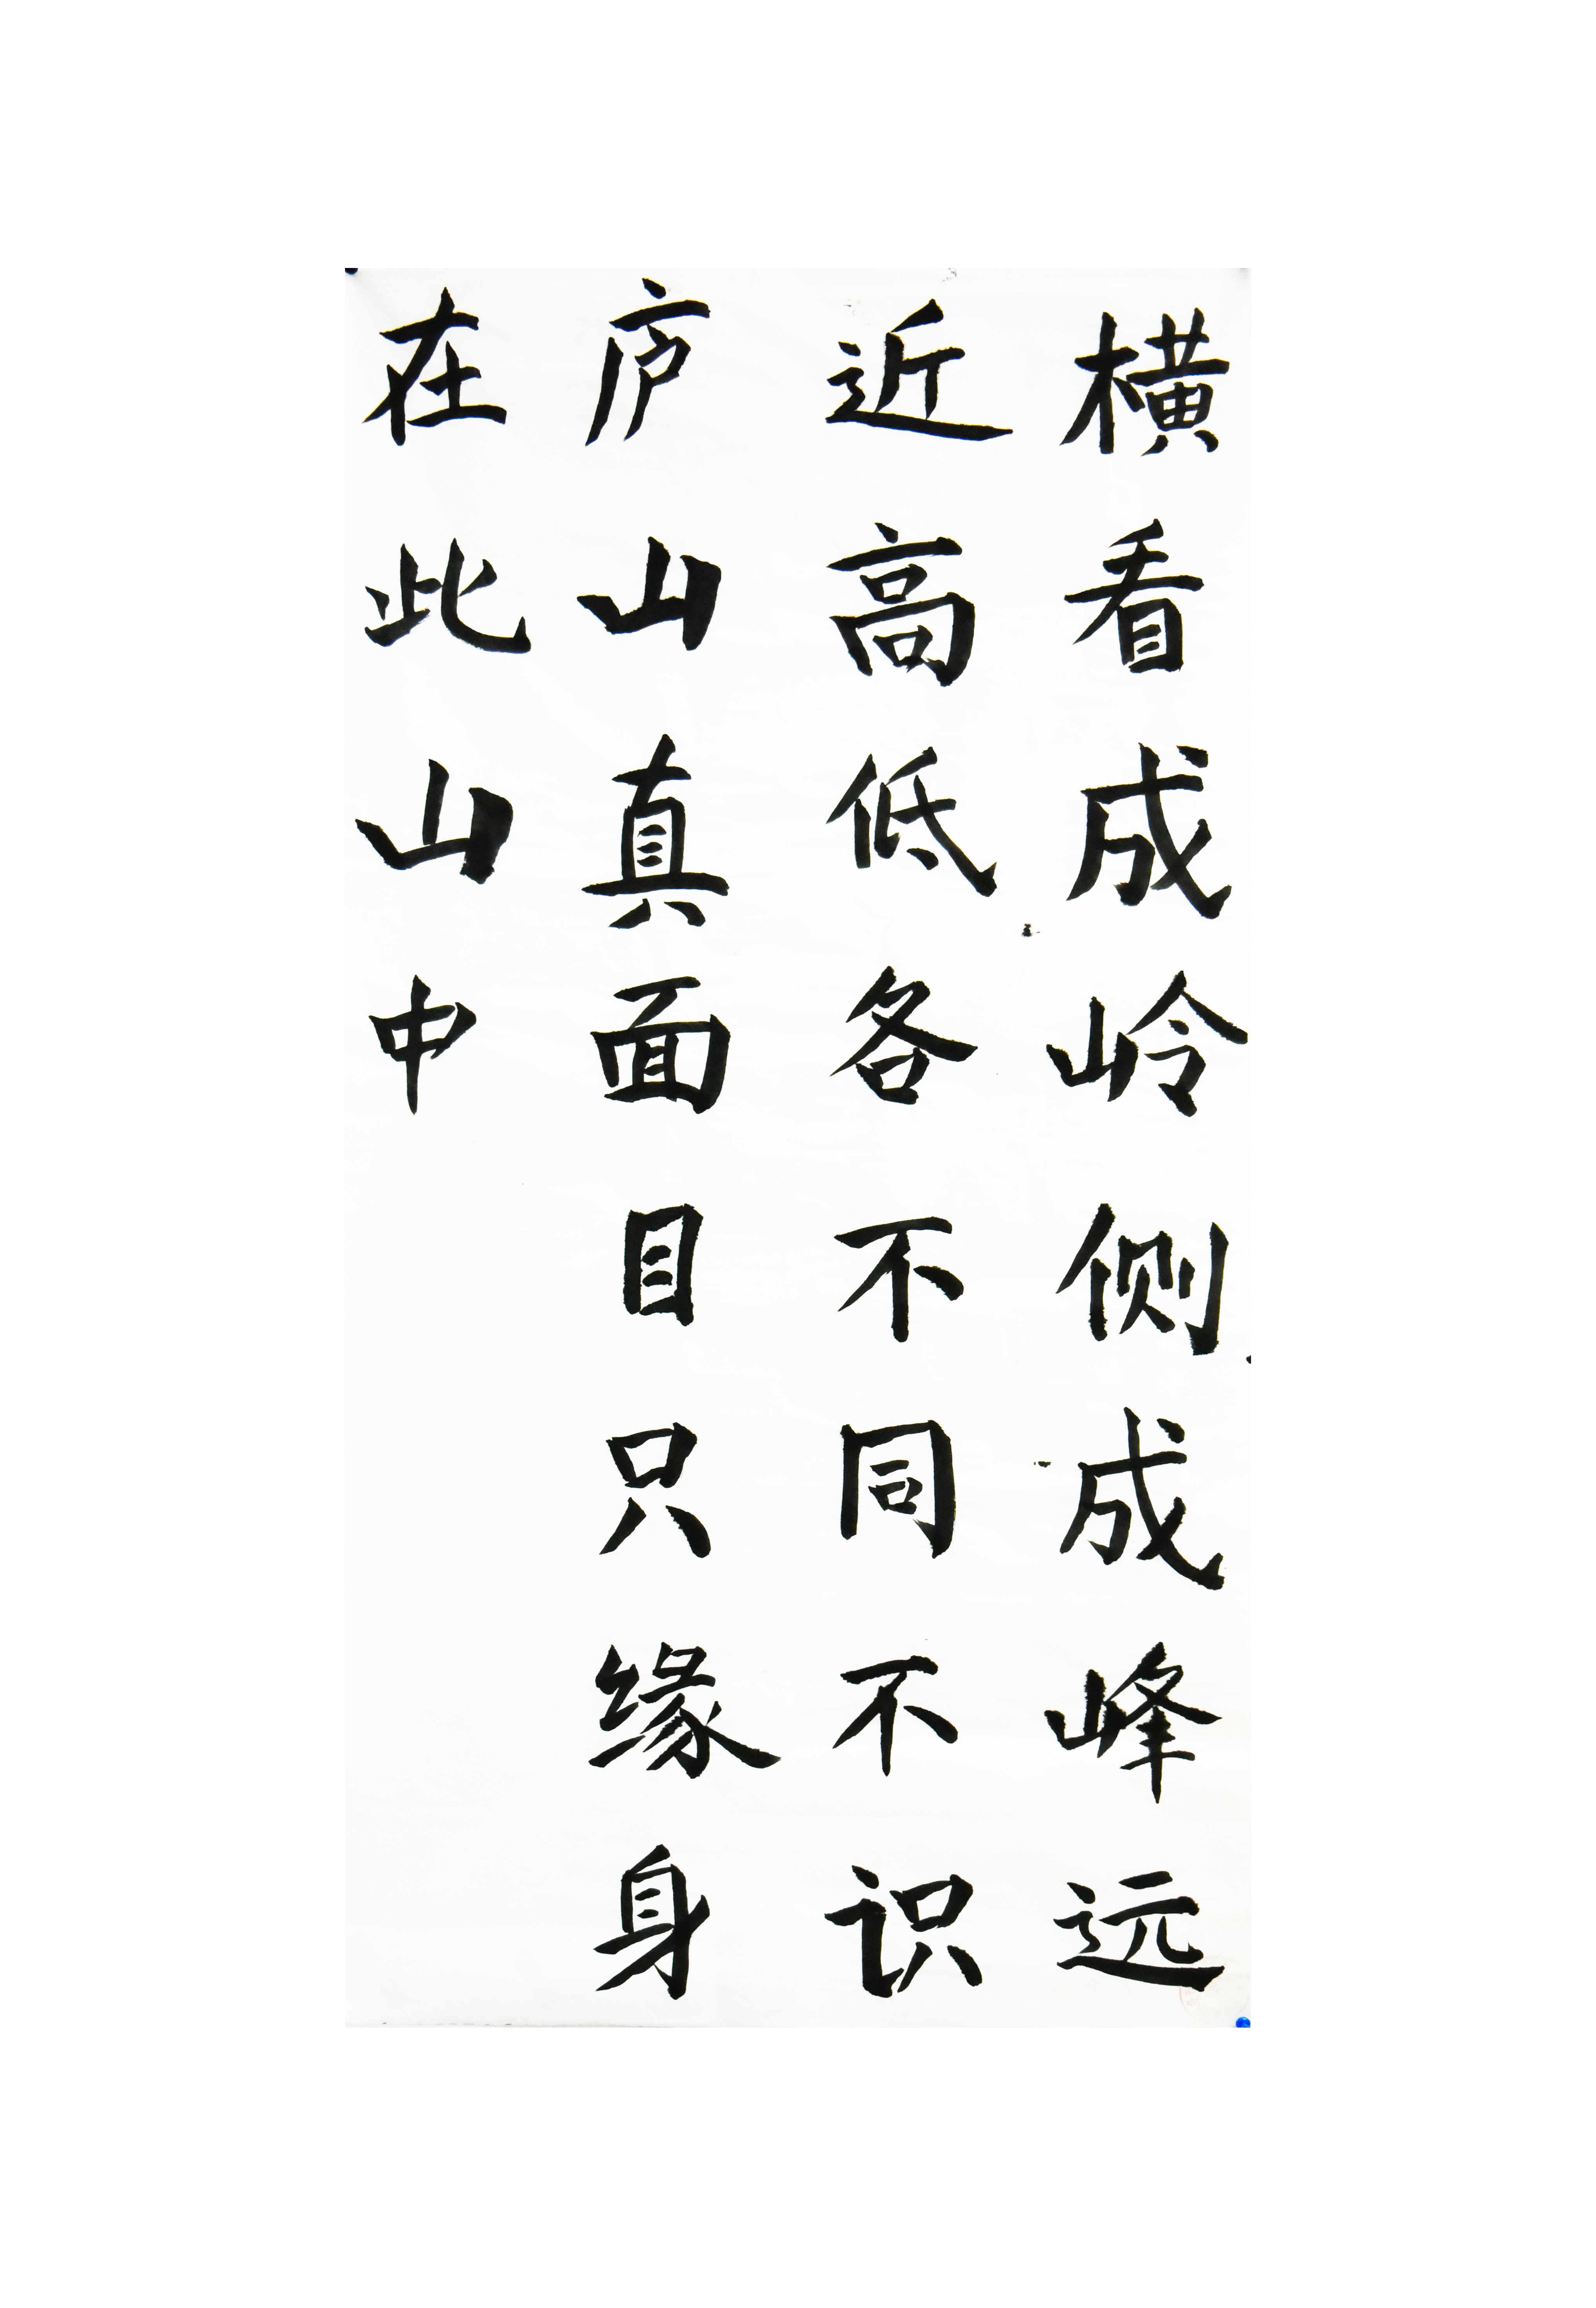 横看成岭侧成峰远
近高低各不同不识
庐山真面目只缘身
在此山中